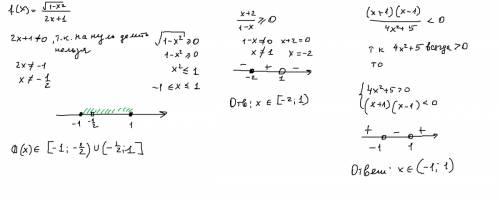 f(x) = √(1-x²) / (2x+1)
2x+1≠0, т.к. на нуль делить
нельзя
2x ≠ -1
x ≠ -1/2
√(1-x²) ≥ 0
1-x² ≥ 0
x² ≤ 1
-1 ≤ x ≤ 1
-1 -1/2 1
D(x) ∈ [-1; -1/2) ∪ (-1/2; 1]
(x+2)/(1-x) ≥ 0
1-x ≠ 0 x+2=0
x ≠ 1 x = -2
- + -
-2 1
Отв: x ∈ [-2; 1)
(x+1)(x-1) / (4x²+5) < 0
т.к 4x²+5 всегда >0
то
{ 4x²+5>0
(x+1)(x-1) < 0
+ - +
-1 1
Ответ: x ∈ (-1; 1)